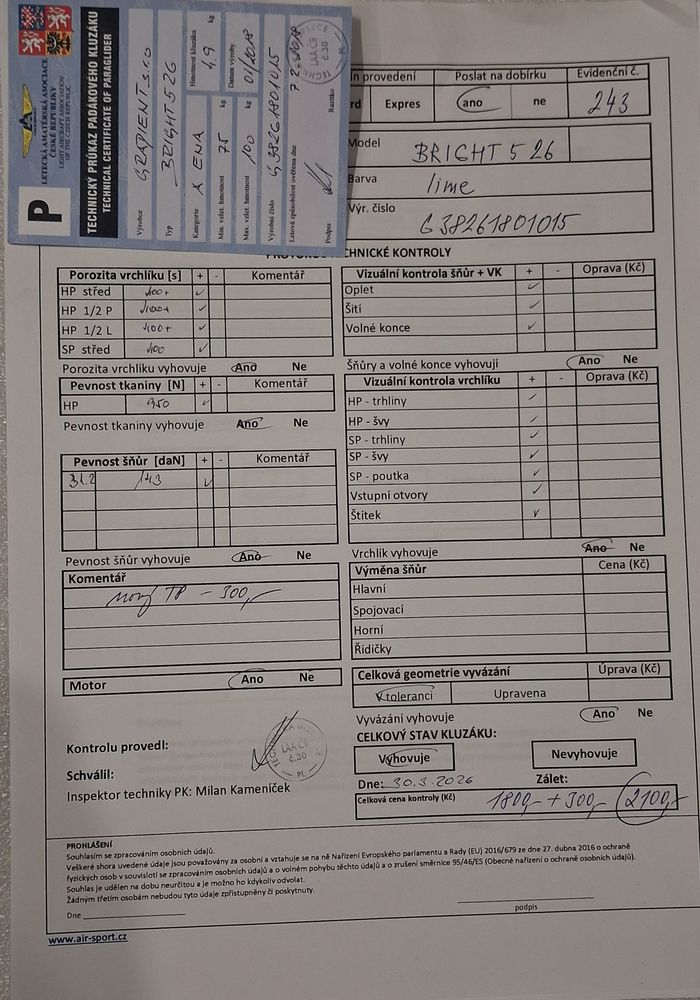 P
LETECKÁ AMATÉRSKÁ ASOCIACE
ČESKÉ REPUBLIKY
LIGHT AIRCRAFT ASSOCIATION
OF THE CZECH REPUBLIC
TECHNICKÝ PRŮKAZ PADÁKOVÉHO KLUZÁKU
TECHNICAL CERTIFICATE OF PARAGLIDER
Výrobce GRADIENT s.r.o
Typ BRIGHT 5 26
Kategorie A ENA Hmotnost kluzáku 4.9 kg
Min. vzlet. hmotnost 75 kg Datum výroby
Max. vzlet. hmotnost 100 kg 01/2018
Výrobní číslo G38261801015
Letová způsobilost ověřena dne
Podpis Razítko
LAA ČR
č.30
PL
provedení Poslat na dobírku Evidenční č.
rd Expres ano ne 243
Model BRIGHT 5 26
Barva lime
Výr. číslo G38261801015
CHNICKÉ KONTROLY
Porozita vrchlíku [s] + - Komentář
HP střed 400+ ✓
HP 1/2 P 400+ ✓
HP 1/2 L 400+ ✓
SP střed 400 ✓
Porozita vrchlíku vyhovuje Ano Ne
Pevnost tkaniny [N] + - Komentář
HP 950 ✓
Pevnost tkaniny vyhovuje Ano Ne
Pevnost šňůr [daN] + - Komentář
143 ✓
Pevnost šňůr vyhovuje Ano Ne
Komentář
nový TP - 300,-
Motor Ano Ne
Vizuální kontrola šňůr + VK + - Oprava (Kč)
Oplet ✓
Šití ✓
Volné konce ✓
Šňůry a volné konce vyhovují Ano Ne
Vizuální kontrola vrchlíku + - Oprava (Kč)
HP - trhliny ✓
HP - švy ✓
SP - trhliny ✓
SP - švy ✓
SP - poutka ✓
Vstupní otvory ✓
Štítek ✓
Vrchlík vyhovuje Ano Ne
Výměna šňůr Cena (Kč)
Hlavní
Spojovací
Horní
Řidičky
Celková geometrie vyvázání Úprava (Kč)
V toleranci Upravena
Vyvázání vyhovuje Ano Ne
CELKOVÝ STAV KLUZÁKU:
Vyhovuje Nevyhovuje
Dne: 30.3.2026 Zálet:
Celková cena kontroly (Kč) 1800,- + 300,- 2100,-
Kontrolu provedl:
LAA ČR
č.30
PL
Schválil:
Inspektor techniky PK: Milan Kameníček
PROHLÁŠENÍ
Souhlasím se zpracováním osobních údajů.
Veškeré shora uvedené údaje jsou považovány za osobní a vztahuje se na ně Nařízení Evropského parlamentu a Rady (EU) 2016/679 ze dne 27. dubna 2016 o ochraně
fyzických osob v souvislosti se zpracováním osobních údajů a o volném pohybu těchto údajů a o zrušení směrnice 95/46/ES (Obecné nařízení o ochraně osobních údajů).
Souhlas je udělen na dobu neurčitou a je možno ho kdykoliv odvolat.
Žádným třetím osobám nebudou tyto údaje zpřístupněny či poskytnuty.
Dne
podpis
www.air-sport.cz